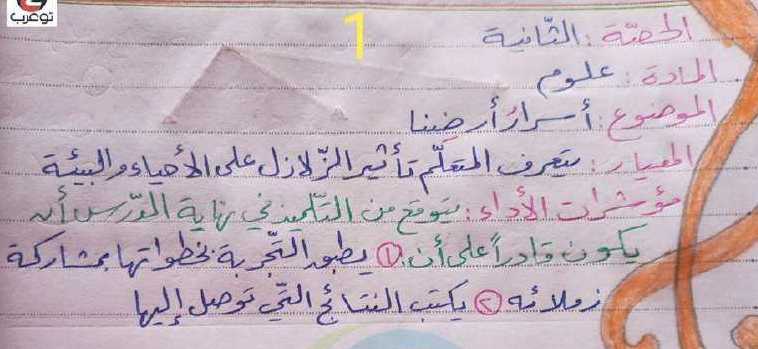 توعرب
1
الحصّة : الثّانية
المادة : علوم
الموضوع : أسرارُ أرضِنا
المعيار : يتعرف المتعلّم تأثير الزّلازل على الأحياء والبيئة
مؤشرات الأداء : يتوقع من التّلميذ في نهاية الدّرس أن
يكون قادراً على أن : ① يطبق التّجربة بخطواتها بمشاركة
زملائه ② يكتب النتائج التّي توصل إليها